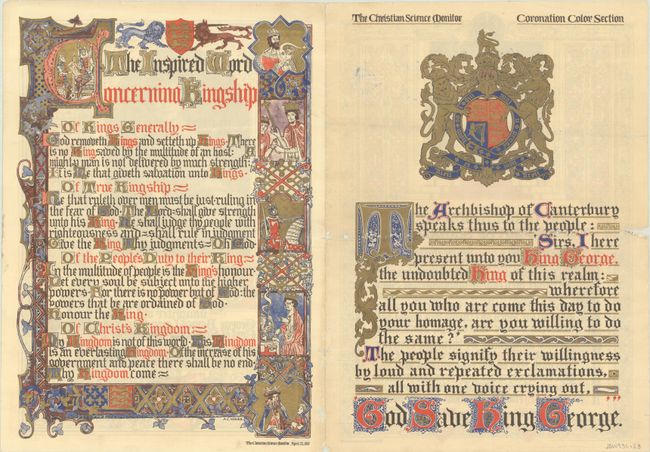 The Inspired Word
Concerning Kingship
Of Kings Generally
God removeth Kings and setteth up Kings. There
is no King saved by the multitude of an host: A
mighty man is not delivered by much strength:
It is He that giveth salvation unto Kings.
Of True Kingship
He that ruleth over men must be just. ruling in
the fear of God. The Lord shall give strength
unto his King. He shall judge thy people with
righteousness and shall rule in judgment.
Give the King Thy judgments Oh God.
Of the People's Duty to their King
In the multitude of people is the King's honour.
Let every soul be subject unto the higher
powers. For there is no power but of God: the
powers that be are ordained of God.
Honour the King.
Of Christ's Kingdom
My Kingdom is not of this world. His Kingdom
is an everlasting Kingdom. Of the increase of his
government and peace there shall be no end.
Thy Kingdom come
The Christian Science Monitor April 23, 1937
The Christian Science Monitor Coronation Color Section
The Archbishop of Canterbury
speaks thus to the people:
"Sirs, I here
present unto you King George,
the undoubted King of this realm:
wherefore
all you who are come this day to do
your homage, are you willing to do
the same?"
The people signify their willingness
by loud and repeated exclamations,
all with one voice crying out,
God Save King George."